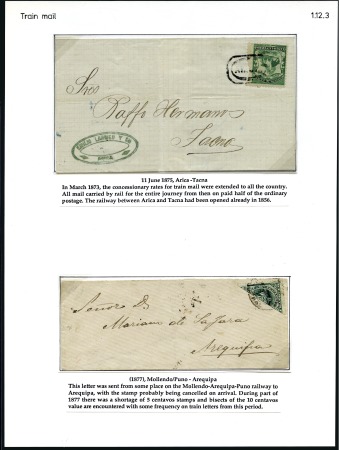 Train mail
1.12.3
Sres
Raffo Hermanos
Tacna
11 June 1875, Arica -Tacna
In March 1873, the concessionary rates for train mail were extended to all the country.
All mail carried by rail for the entire journey from then on paid half of the ordinary
postage. The railway between Arica and Tacna had been opened already in 1856.
Señor D
Mariano de La Jara
Arequipa
(1877), Mollendo/Puno - Arequipa
This letter was sent from some place on the Mollendo-Arequipa-Puno railway to
Arequipa, with the stamp probably being cancelled on arrival. During part of
1877 there was a shortage of 5 centavos stamps and bisects of the 10 centavos
value are encountered with some frequency on train letters from this period.